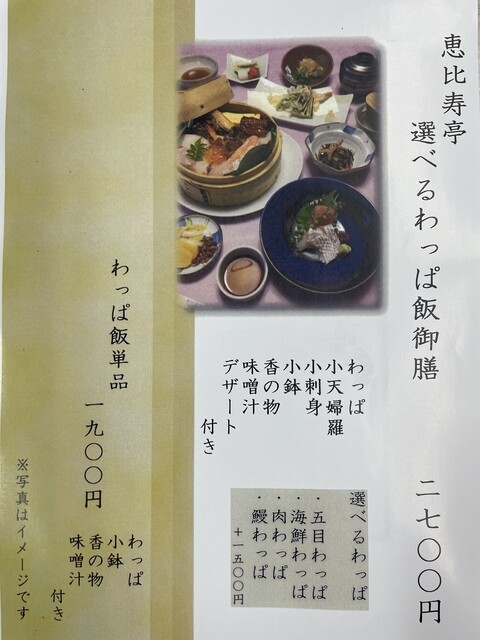 恵比寿亭
選べるわっぱ飯御膳 二七〇〇円
わっぱ
小天婦羅
小刺身
小鉢
香の物
味噌汁
デザート
付き
選べるわっぱ
・五目わっぱ
・海鮮わっぱ
・肉わっぱ
・鰻わっぱ
+一五〇〇円
わっぱ飯単品 一九〇〇円
わっぱ
小鉢
香の物
味噌汁
付き
※写真はイメージです